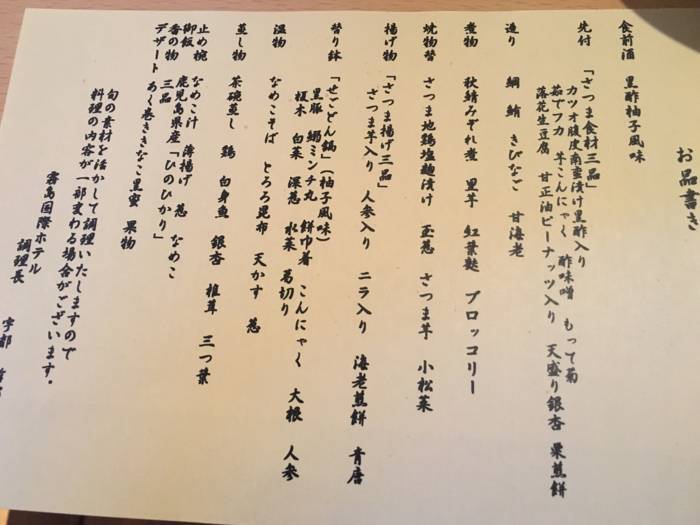 お品書き
食前酒 黒酢柚子風味
先付 「さつま食材三品」
カツオ腹皮南蛮漬け黒酢入り
茹でフカ 芋こんにゃく 酢味噌 もって菊
落花生豆腐 甘正油ピーナッツ入り 天盛り銀杏 栗煎餅
造り 鯛 鮪 きびなご 甘海老
煮物 秋鯖みぞれ煮 里芋 紅葉麩 ブロッコリー
焼物替 さつま地鶏塩麹漬け 玉葱 さつま芋 小松菜
揚げ物 「さつま揚げ三品」
さつま芋入り 人参入り ニラ入り 海老煎餅 青唐
替り鉢 「せごどん鍋」(柚子風味)
黒豚 鰯ミンチ丸 餅巾着 こんにゃく 大根 人参
榎木 白菜 深葱 水菜 葛切り
温物 なめこそば とろろ昆布 天かす 葱
蒸し物 茶碗蒸し 鶏 白身魚 銀杏 椎茸 三つ葉
止め椀 なめこ汁 薄揚げ 葱 なめこ
御飯 鹿児島県産「ひのひかり」
香の物 三品
デザート あく巻ききなこ黒蜜 果物
旬の素材を活かして調理いたしますので
料理の内容が一部変わる場合がございます。
霧島国際ホテル
調理長 宇都